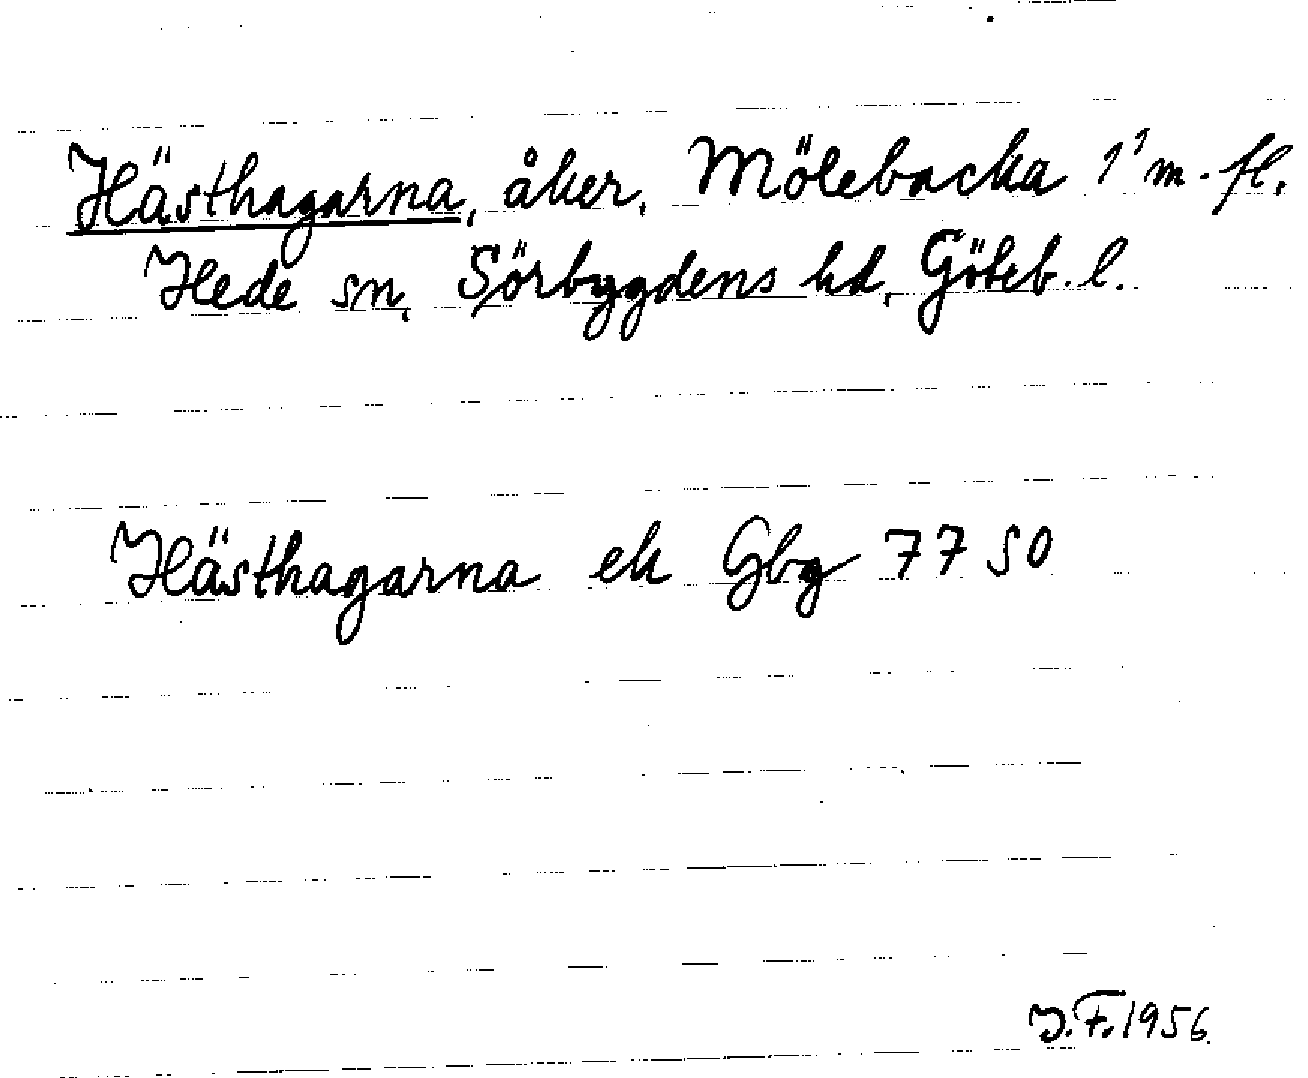 Hästhagarna, åker, Mölebacka 1¹ m. fl.
Hede sn, Sörbygdens hd, Göteb. l.
Hästhagarna ek Gbg 7750
J.F. 1956.